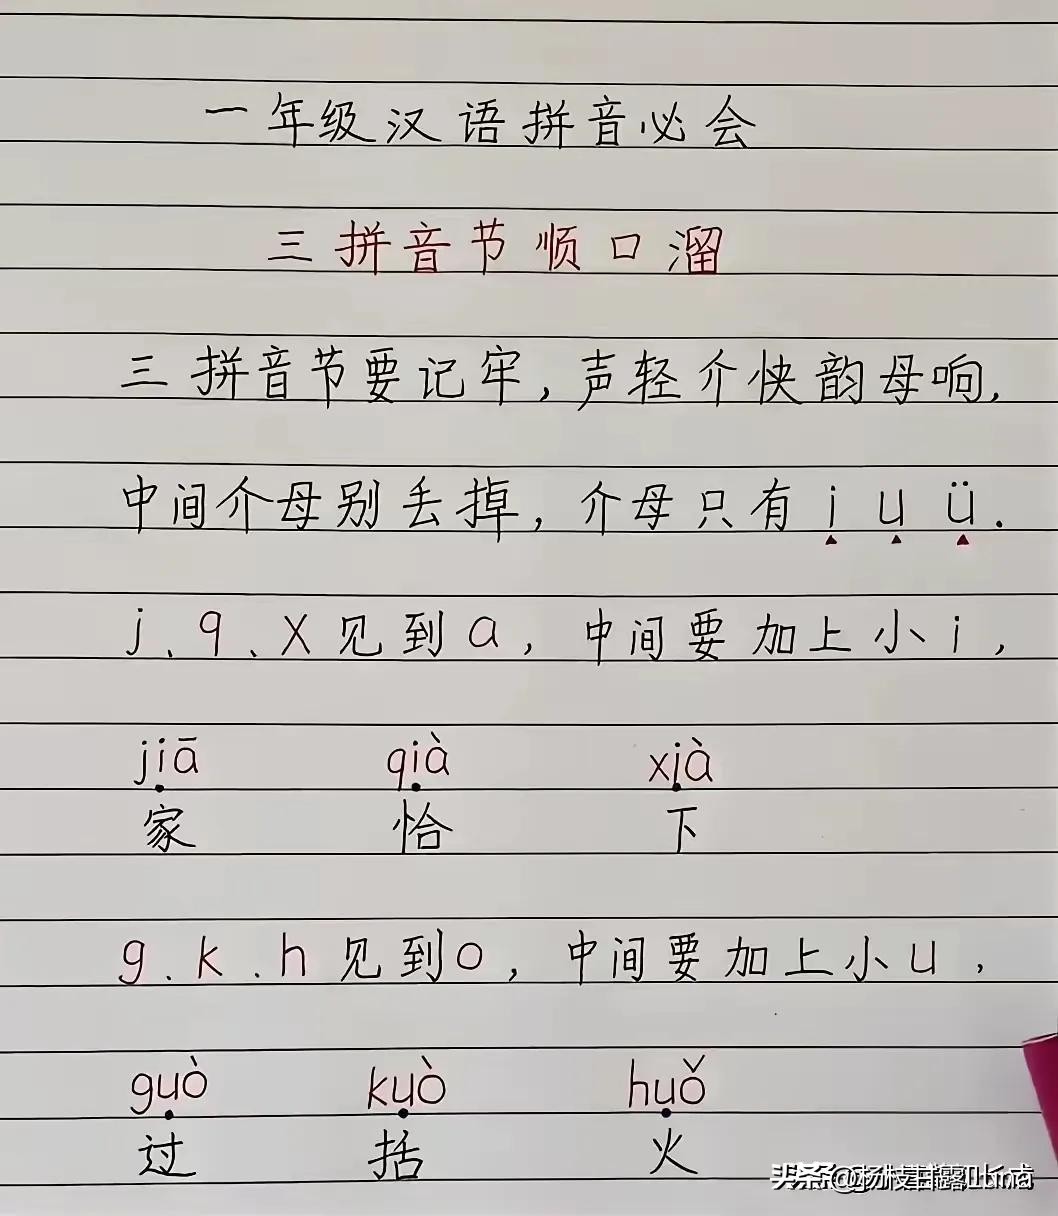 一年级汉语拼音必会
三拼音节顺口溜
三拼音节要记牢,声轻介快韵母响,
中间介母别丢掉,介母只有 i u ü.
j、q、x见到a,中间要加上小i,
jiā qià xià
家 恰 下
g、k、h见到o,中间要加上小u,
guò kuò huǒ
过 括 火
头条@杨枝